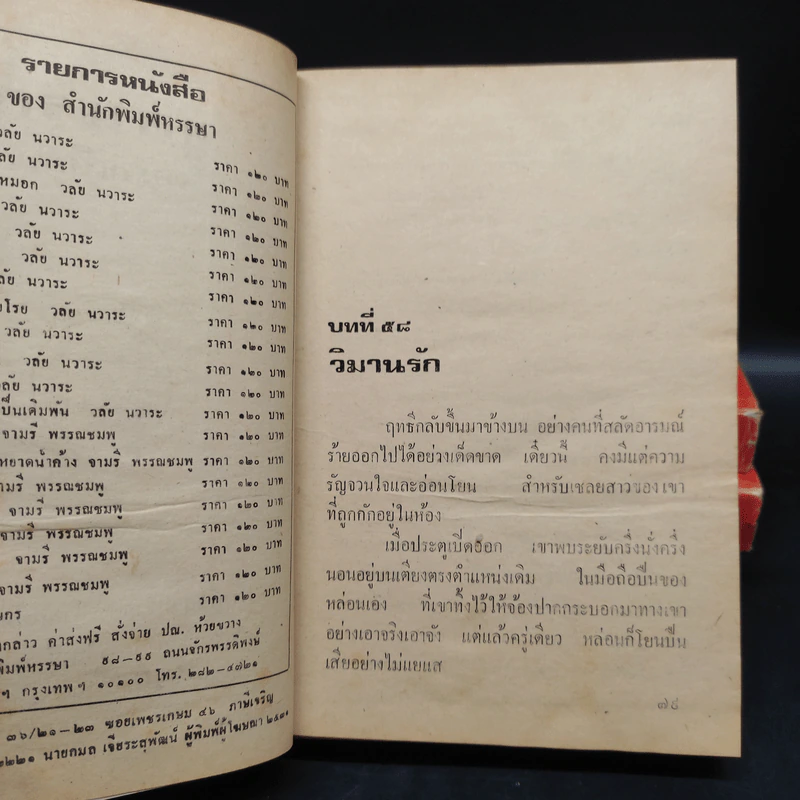 รายการหนังสือ
ของ สำนักพิมพ์หรรษา
วลัย นวาระ
วลัย นวาระ ราคา ๑๒๐ บาท
หมอก วลัย นวาระ ราคา ๑๒๐ บาท
วลัย นวาระ ราคา ๑๒๐ บาท
วลัย นวาระ ราคา ๑๒๐ บาท
วลัย นวาระ ราคา ๑๒๐ บาท
วลัย นวาระ ราคา ๑๒๐ บาท
วลัย นวาระ ราคา ๑๒๐ บาท
วลัย นวาระ ราคา ๑๒๐ บาท
วลัย นวาระ ราคา ๑๒๐ บาท
วลัย นวาระ ราคา ๑๒๐ บาท
ป็นเดิมพัน วลัย นวาระ ราคา ๑๒๐ บาท
จามรี พรรณชมพู ราคา ๑๒๐ บาท
หยาดน้ำค้าง จามรี พรรณชมพู ราคา ๑๒๐ บาท
จามรี พรรณชมพู ราคา ๑๒๐ บาท
จามรี พรรณชมพู ราคา ๑๒๐ บาท
จามรี พรรณชมพู ราคา ๑๒๐ บาท
จามรี พรรณชมพู ราคา ๑๒๐ บาท
จามรี พรรณชมพู ราคา ๑๒๐ บาท
ราคา ๑๒๐ บาท
กล่าว ค่าส่งฟรี สั่งจ่าย ปณ. ห้วยขวาง
พิมพ์หรรษา ๙๘–๙๙ ถนนจักรพรรดิพงษ์
ฯ กรุงเทพฯ ๑๐๑๐๐ โทร. ๒๘๒–๙๗๒๑
๓๖/๒๑–๒๓ ซอยเพชรเกษม ๔๖ ภาษีเจริญ
นายกมล เจียระสุพัฒน์ ผู้พิมพ์ผู้โฆษณา
บทที่ ๕๘
วิมานรัก
ฤทธีกลับขึ้นมาข้างบน อย่างคนที่สลัดอารมณ์
ร้ายออกไปได้อย่างเด็ดขาด เดี๋ยวนี้ คงมีแต่ความ
รัญจวนใจและอ่อนโยน สำหรับเชลยสาวของเขา
ที่ถูกกักอยู่ในห้อง
เมื่อประตูเปิดออก เขาพบระยับครึ่งนั่งครึ่ง
นอนอยู่บนเตียงตรงตำแหน่งเดิม ในมือถือปืนของ
หล่อนเอง ที่เขาทิ้งไว้ให้จ้องปากกระบอกมาทางเขา
อย่างเอาจริงเอาจัง แต่แล้วครู่เดียว หล่อนก็โยนปืน
เสียอย่างไม่แยแส
๗๙